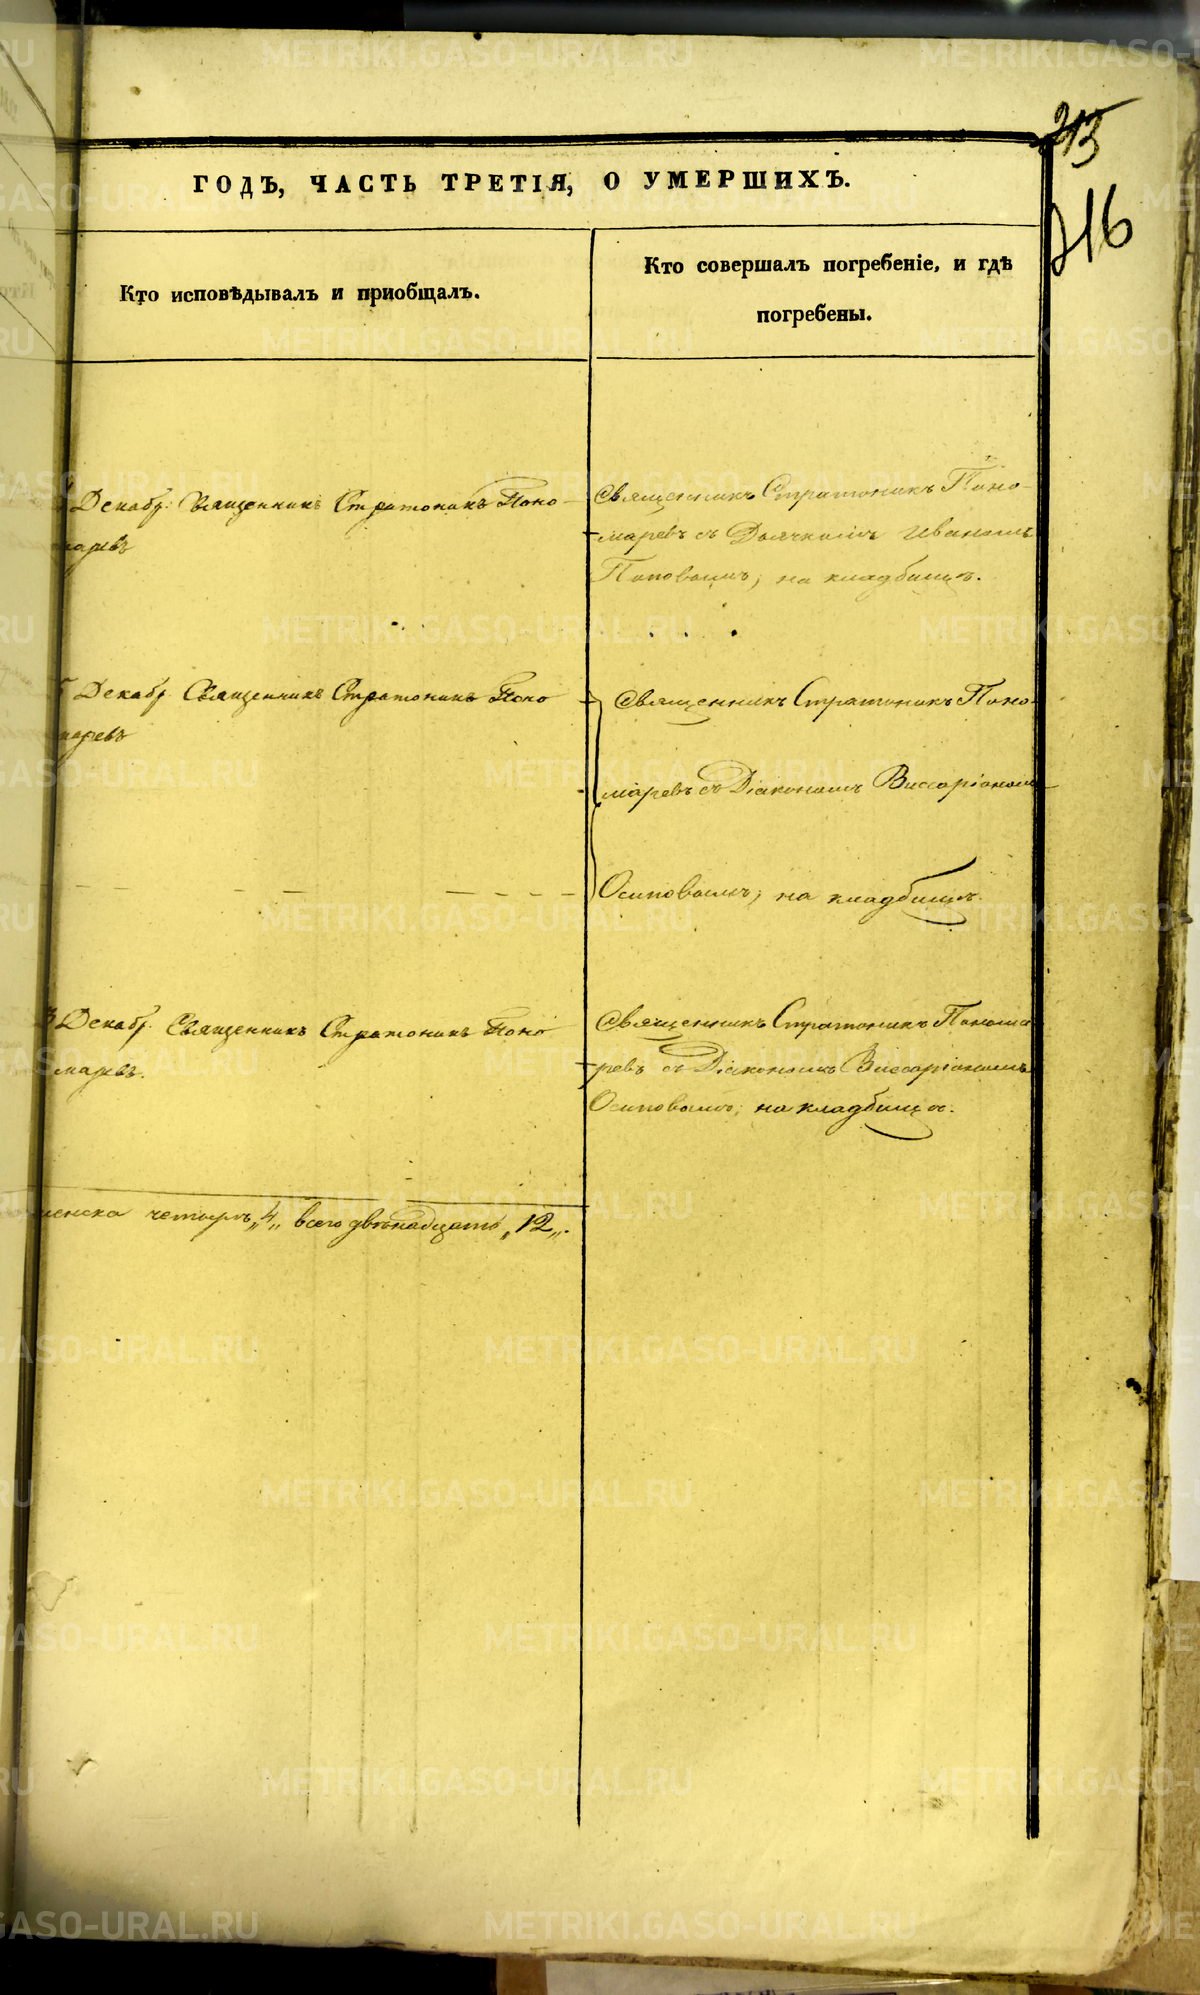 215
216
ГОДЪ, ЧАСТЬ ТРЕТІЯ, О УМЕРШИХЪ.
Кто исповѣдывалъ и приобщалъ.
Кто совершалъ погребеніе, и гдѣ
погребены.
Декабр. Священникъ Стратоникъ Поно-
маревъ
Священникъ Стратоникъ Поно-
маревъ съ Дьячкомъ Иваномъ
Поповымъ, на кладбищѣ.
Декабр. Священникъ Стратоникъ Поно
маревъ
Священникъ Стратоникъ Поно-
маревъ съ Діакономъ Виссаріономъ
Осиповымъ, на кладбищѣ.
Декабр. Священникъ Стратоникъ Поно
маревъ.
Священникъ Стратоникъ Понома
ревъ съ Діакономъ Виссаріономъ
Осиповымъ, на кладбищѣ.
женска четыре „4„ всего двѣнадцать „12„.
METRIKI.GASO-URAL.RU